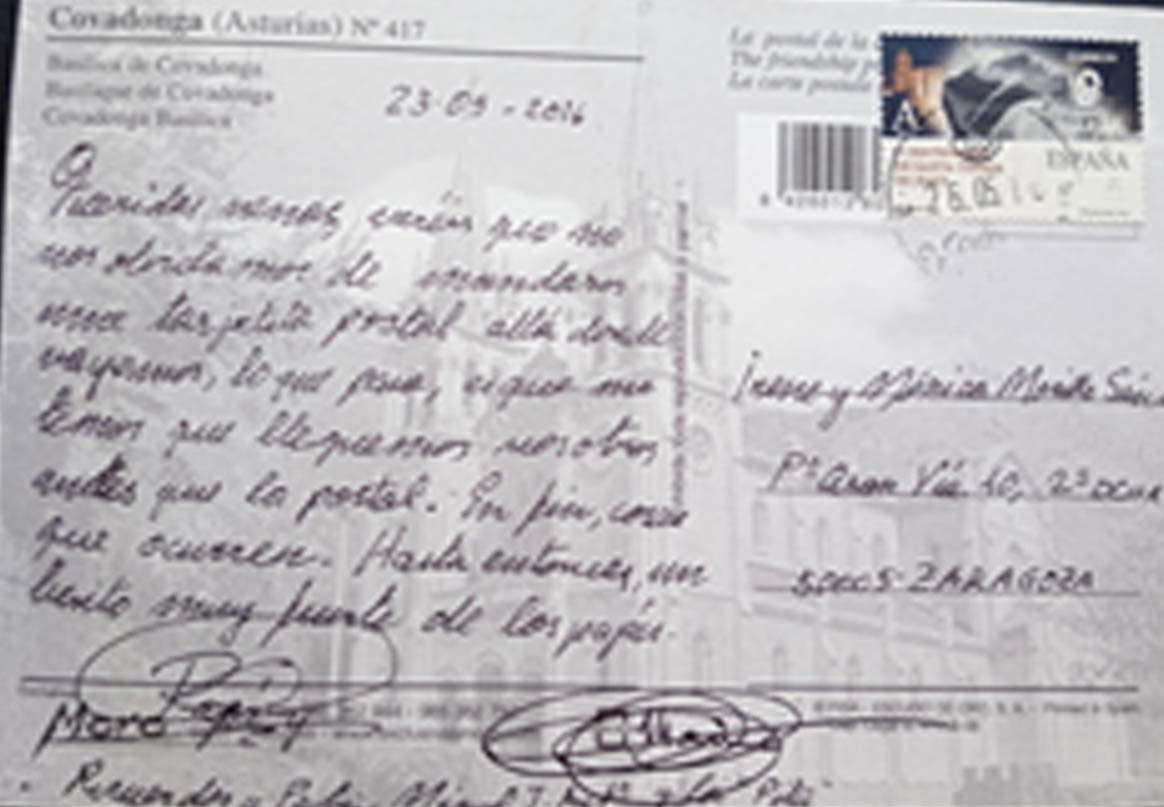 Covadonga (Asturias) Nº 417
Basílica de Covadonga
Basilique de Covadonga
Covadonga Basilica
23-05-2016
Queridas nenas, veréis que no
nos olvidamos de mandaros
una tarjetita postal allá donde
vayamos, lo que pasa, es que me
temo que lleguemos nosotros
antes que la postal. En fin, cosas
que ocurren. Hasta entonces, un
besito muy fuerte de los papás.
Moro
Recuerdos a
La postal de la
The friendship
La carte postale
ESPAÑA
A
26.05.16
Irene y Mónica
Pº Gran Vía 10, 2º
ZARAGOZA